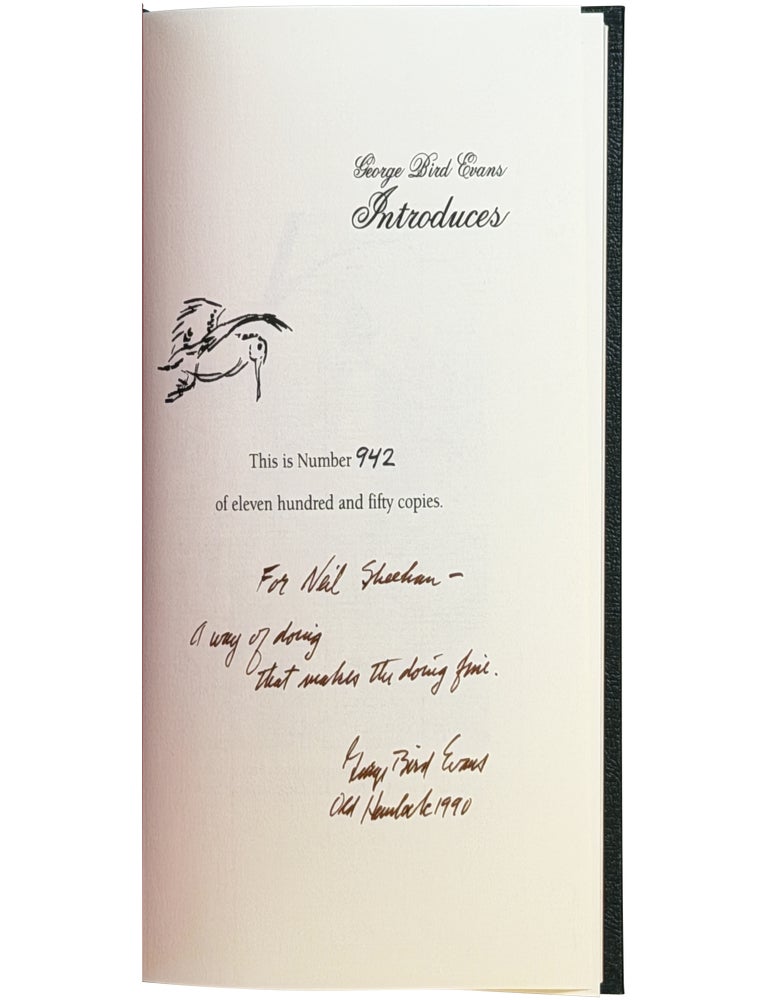 George Bird Evans
Introduces
This is Number 942
of eleven hundred and fifty copies.
For Neil Sheehan –
A way of doing
that makes the doing fine.
George Bird Evans
Old Hemlock 1990